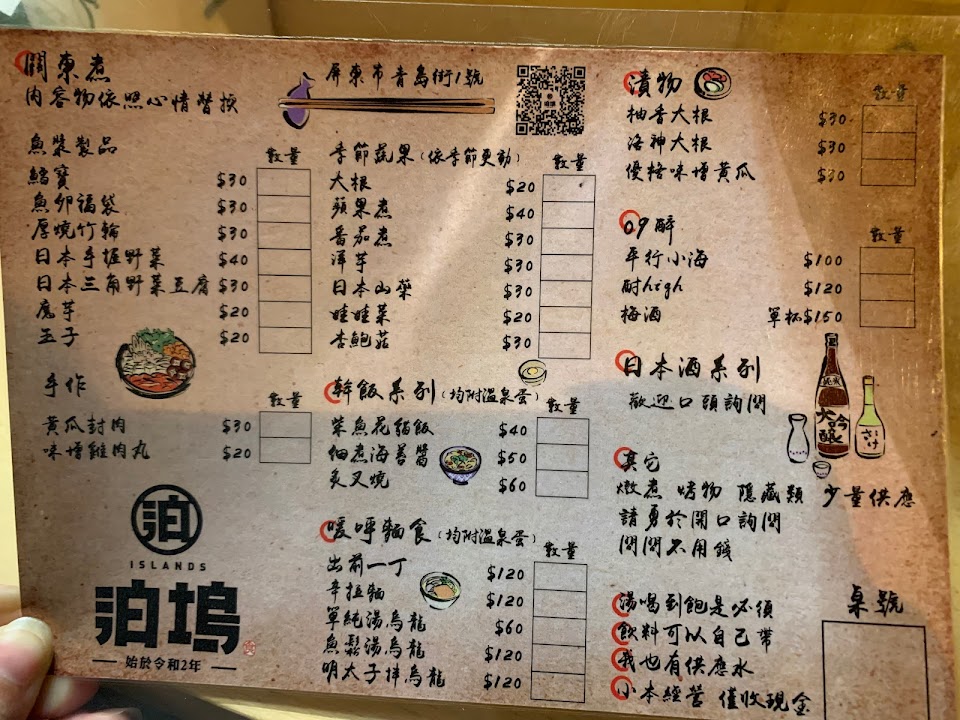 關東煮
內容物依照心情替換
魚漿製品 數量
鱈寶 $30
魚卵福袋 $30
厚燒竹輪 $30
日本手握野菜 $40
日本三角野菜豆腐 $30
魔芋 $20
玉子 $20
手作 數量
黃瓜封肉 $30
味增雞肉丸 $20
泊
ISLANDS
泊塢
始於令和2年
屏東市青島街1號
季節蔬果(依季節更動) 數量
大根 $20
蘋果煮 $40
番茄煮 $30
洋芋 $30
日本山藥 $30
娃娃菜 $20
杏鮑菇 $30
幹飯系列(均附溫泉蛋) 數量
柴魚花貓飯 $40
佃煮海苔醬 $50
炙叉燒 $60
暖呼麵食(均附溫泉蛋) 數量
出前一丁 $120
辛拉麵 $120
單純湯烏龍 $60
魚鬆湯烏龍 $120
明太子拌烏龍 $120
漬物 數量
柚香大根 $30
洛神大根 $30
優格味增黃瓜 $30
09醉 數量
平行小海 $100
酎high $120
梅酒 單杯$150
日本酒系列
歡迎口頭詢問
大吟釀
さけ
其它
燉煮 烤物 隱藏類 少量供應
請勇於開口詢問
問問不用錢
湯喝到飽是必須
飲料可以自己帶
我也有供應水
小本經營 僅收現金
桌號